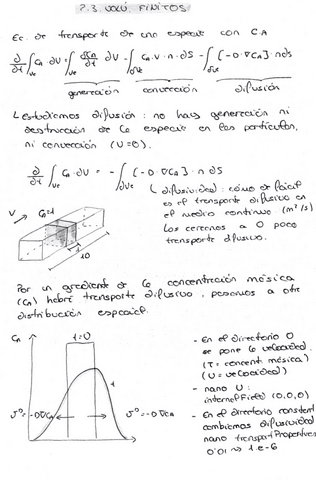 2.3. VOLÚ. FINITOS.
Ec. de transporte de una especie con CA
∂/∂t ∫Ve CA dV = ∫Ve dCA/dt dV - ∫∂Ve CA · V · n · dS - ∫∂Ve [-D · ∇CA] · n dS
generación convección difusión
Estudiamos difusión: no hay generación ni
destrucción de la especie en las partículas,
ni convección (V=0).
∂/∂t ∫Ve CA · dV = - ∫∂Ve (-D · ∇CA] · n dS
difusividad: cómo de fácil
es el transporte difusivo en
el medio continuo (m²/s)
Los cercanos a 0 poco
transporte difusivo.
V CA=1
1
10
Por un gradiente de la concentración másica
(CA) habrá transporte difusivo, pasamos a otra
distribución espacial.
CA
t=0
JD=-D∇CA
JD=-D∇CA
- En el directorio 0
se pone la velocidad.
(T = concent. másica)
(U = velocidad)
- nano U:
internalField (0,0,0)
- En el directorio constant
cambiamos difusividad
nano transportProperties
0'01 → 1.e-6